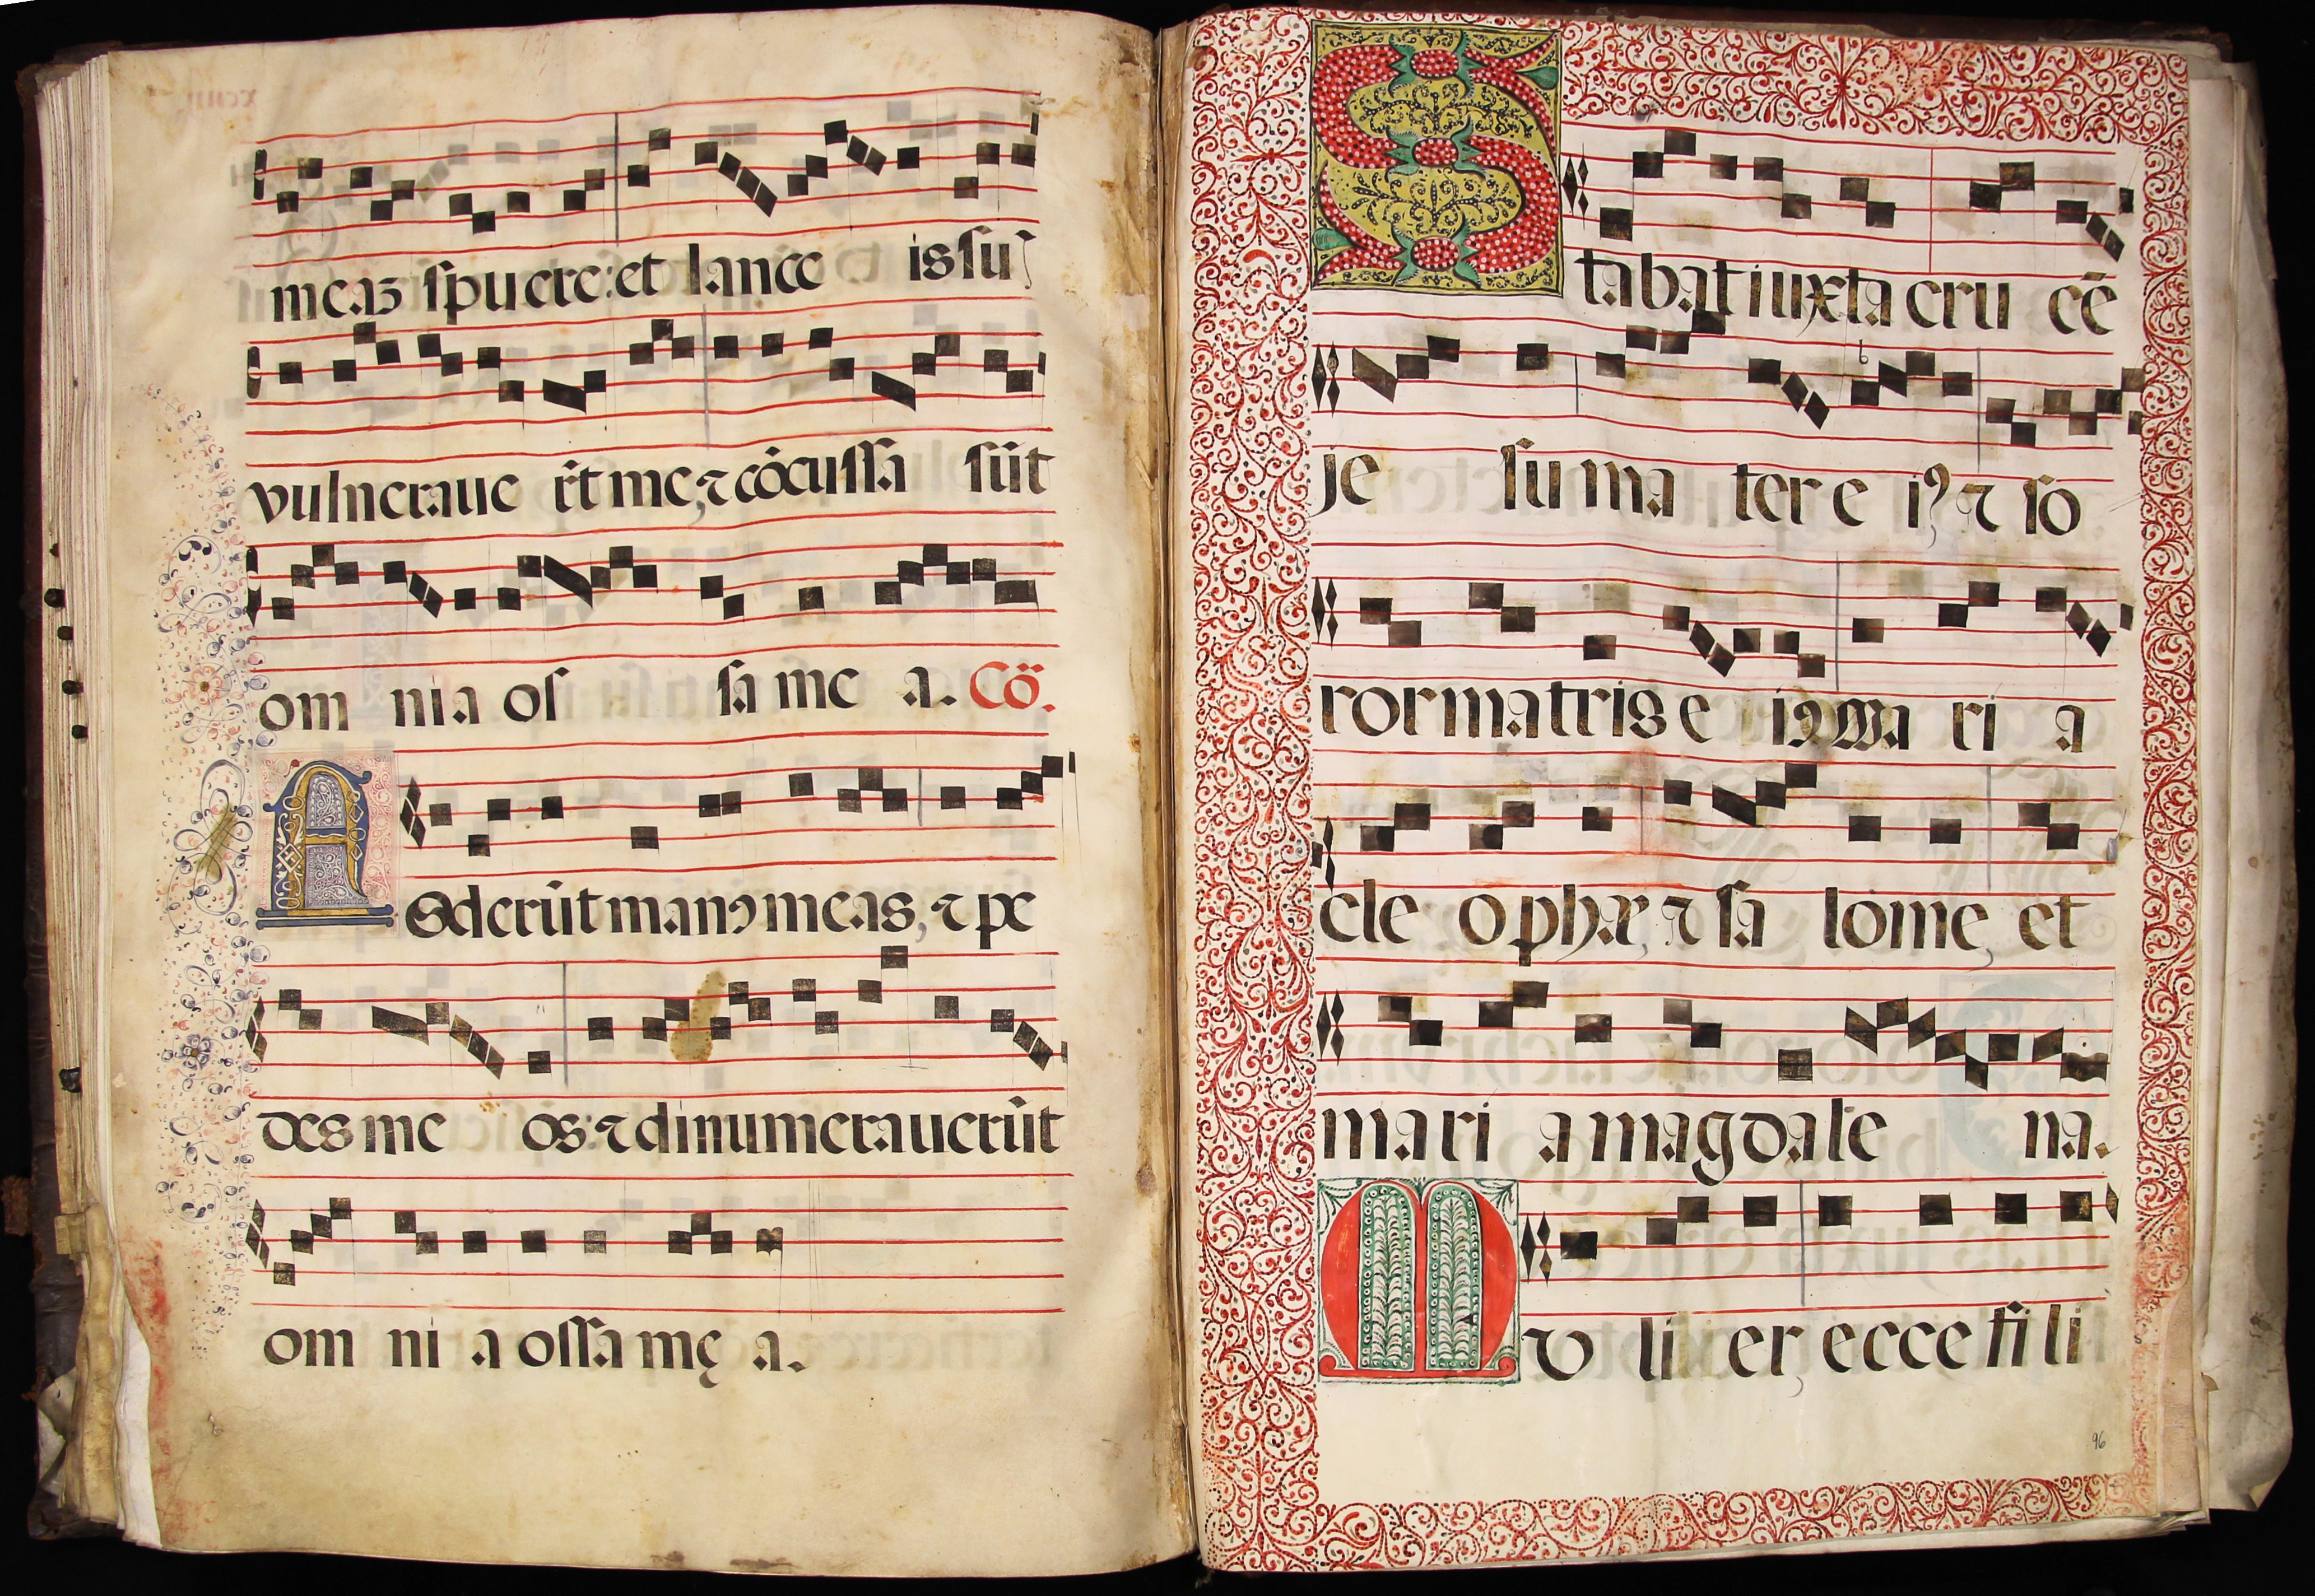 meaȝ spuere: et lance is su
vulneraue rũt me, ⁊ cõcussa sũt
om ni a os sa me a. Cõ.
Foderũt manꝯ meas, ⁊ pe
des me os: ⁊ dinumerauerũt
om ni a ossa mę a.
Stabat iuxta cru cẽ
je su ma ter e iꝰ ⁊ so
ror matris e iꝰ Ma ri a
cle ophæ, ⁊ sa lome, et
mari a magdale na.
Mv li er, ecce fi li
96